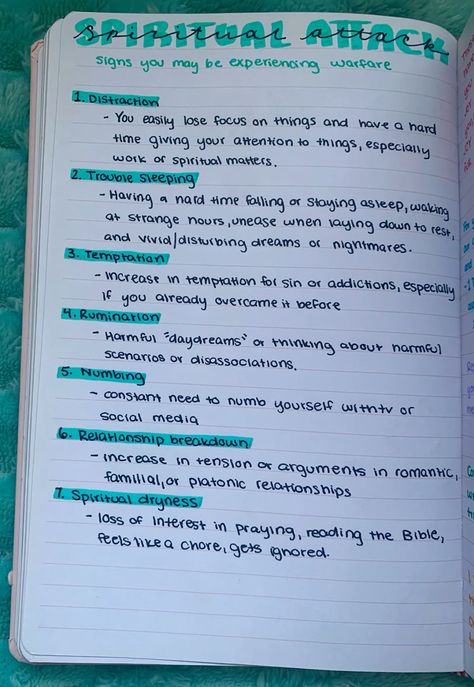 SPIRITUAL ATTACK
spiritual attack
signs you may be experiencing warfare
1. Distraction
- You easily lose focus on things and have a hard
time giving your attention to things, especially
work or spiritual matters.
2. Trouble sleeping
- Having a hard time falling or staying asleep, waking
at strange hours, unease when laying down to rest,
and vivid/disturbing dreams or nightmares.
3. Temptation
- increase in temptation for sin or addictions, especially
if you already overcame it before
4. Rumination
- Harmful "daydreams" or thinking about harmful
scenarios or disassociations.
5. Numbing
- constant need to numb yourself with tv or
social media
6. Relationship breakdown
- increase in tension or arguments in romantic,
familial, or platonic relationships
7. Spiritual dryness
- loss of interest in praying, reading the Bible,
feels like a chore, gets ignored.